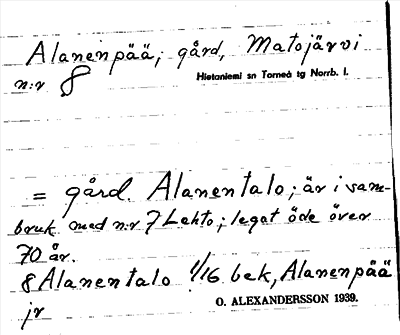 Alanenpää; gård, Matojärvi
n:r 8 Hietaniemi sn Torneå tg Norrb. l.
= gård. Alanentalo; är i sam-
bruk med n:r 7 Lehto; legat öde över
70 år.
8 Alanentalo 1/16 bek, Alanenpää
jr O. ALEXANDERSSON 1939.